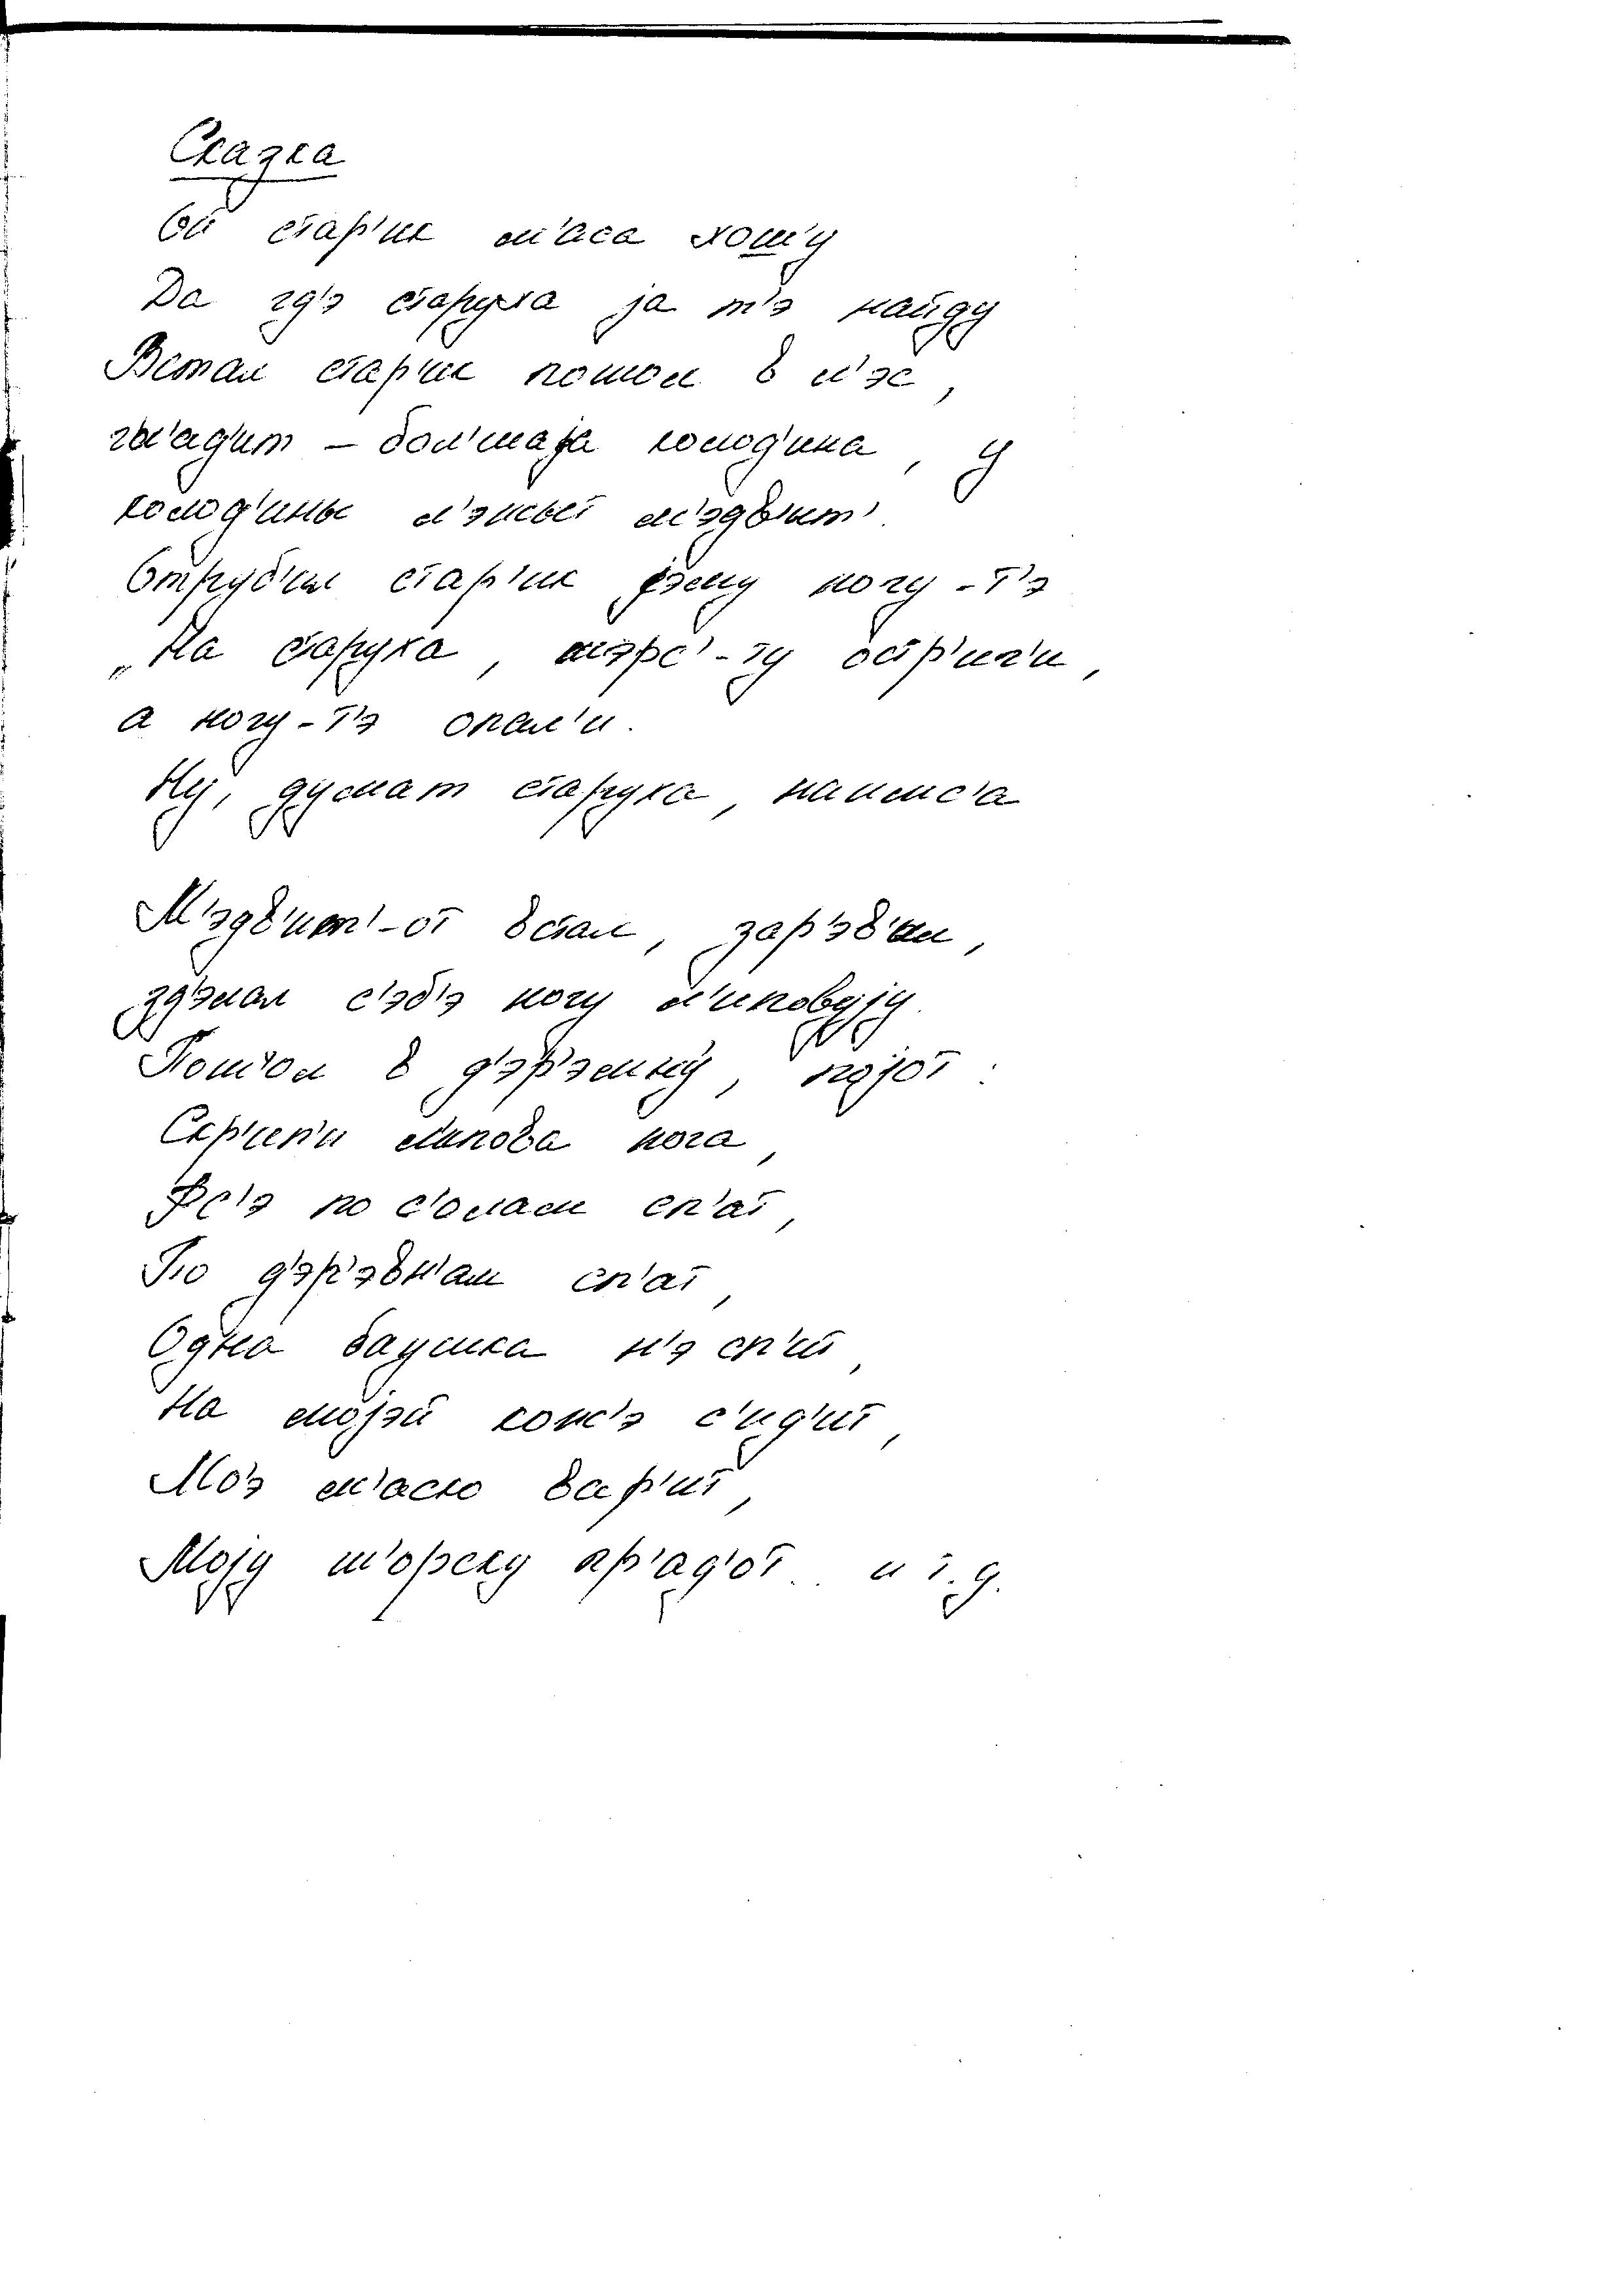 Сказка
Ой стар'ик м'аса хошу
Да гд'э старуха ja т'э найду
Встал стар'ик пошол в л'эс,
гл'ад'ит – бол'шаja колод'ина, у
колод'ины л'эжыт м'эдв'ит'.
Отруб'ил стар'ик jэму ногу-т'э
„На старуха, шэрс'-ту остр'иг'и,
а ногу-т'э опал'и.
Ну, думат старуха, наимс'а
М'эдв'ит'-от встал, зар'эв'ил,
зд'элал с'эб'э ногу л'иповуjу.
Пошол в д'эр'эмн'у, поjот:
Скр'ип'и липова нога,
Вс'э по с'олам сп'ат,
По д'эр'эвн'ам сп'ат,
Одна баушка н'э сп'ит,
На моjэй кож'э с'ид'ит,
Моэ м'асно вар'ит,
Моjу ш'орску пр'ад'от.. и т.д.